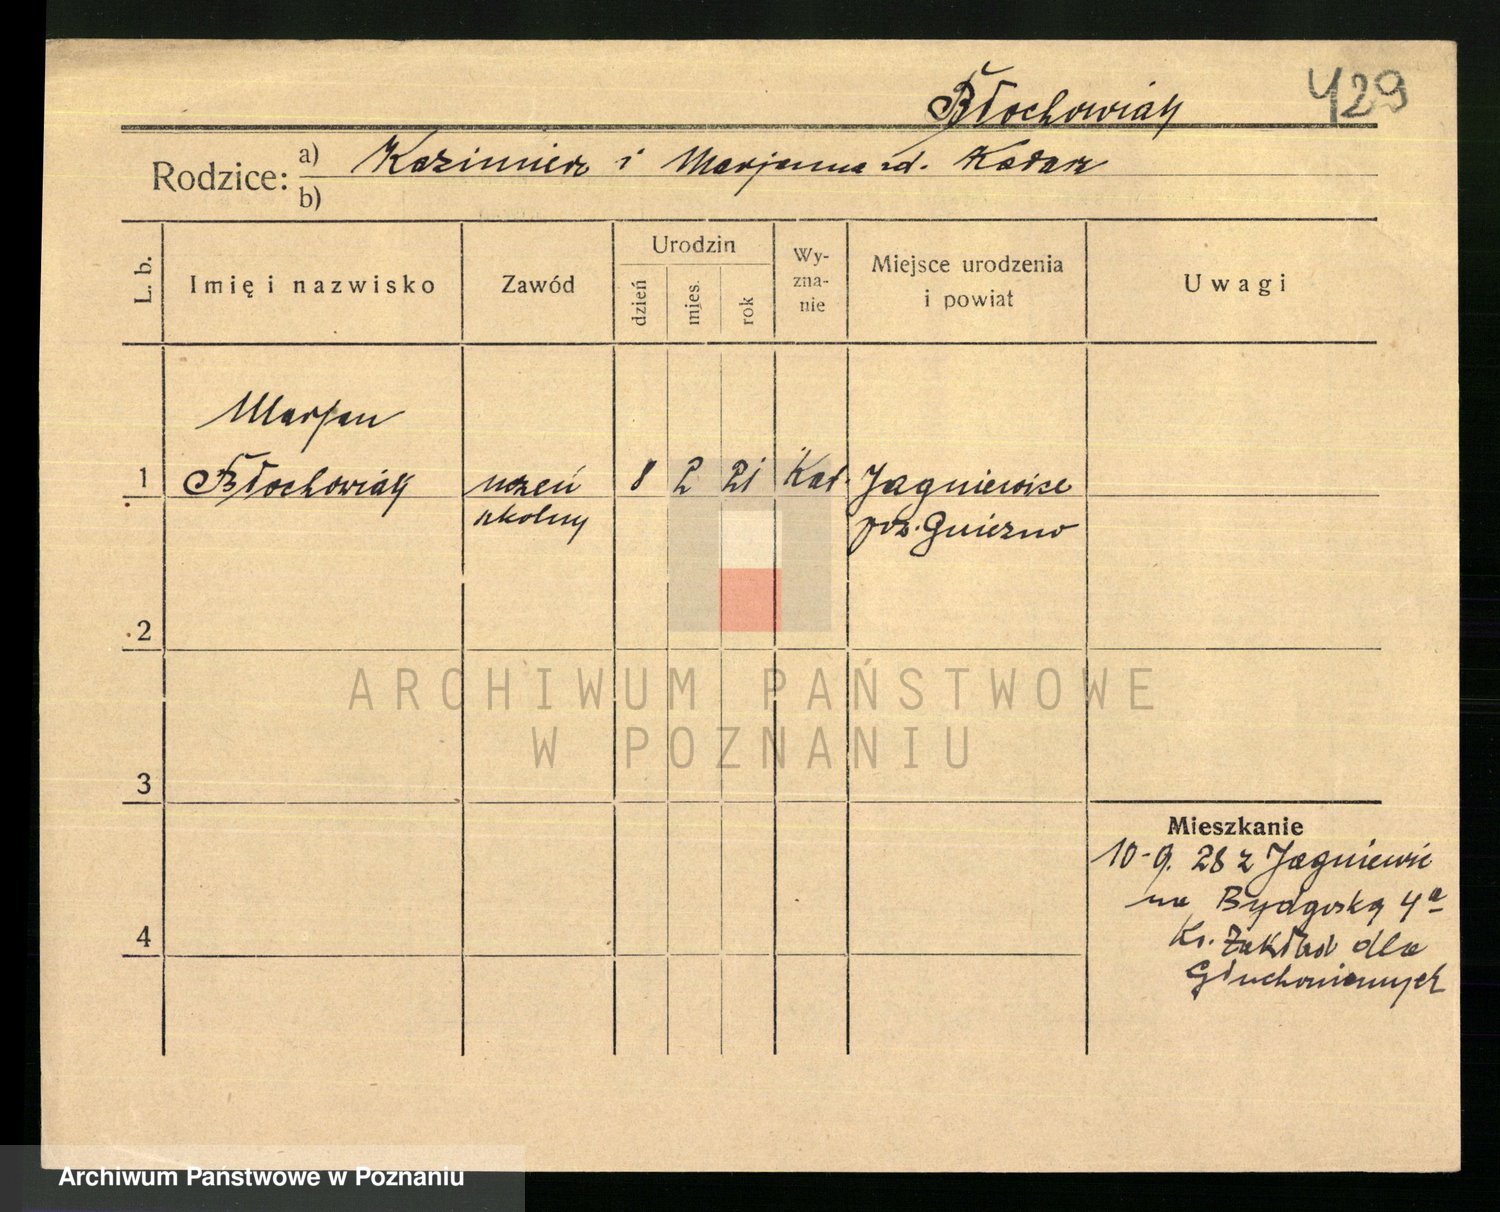 Błochowiak 429
Rodzice: a) Kazimierz i Marjanna zd. Kadarz
b)
L. b. Imię i nazwisko Zawód Urodzin dzień mies. rok Wyznanie Miejsce urodzenia i powiat Uwagi
Marjan
1 Błochowiak uczeń 8 2 21 Kat. Jagniewice
szkolny pow. Gniezno
2
ARCHIWUM PAŃSTWOWE
W POZNANIU
3
Mieszkanie
10-9. 28 z Jagniewic
na Bydgoską 4a
4 Kr. Zakład dla
Głuchoniemych
Archiwum Państwowe w Poznaniu